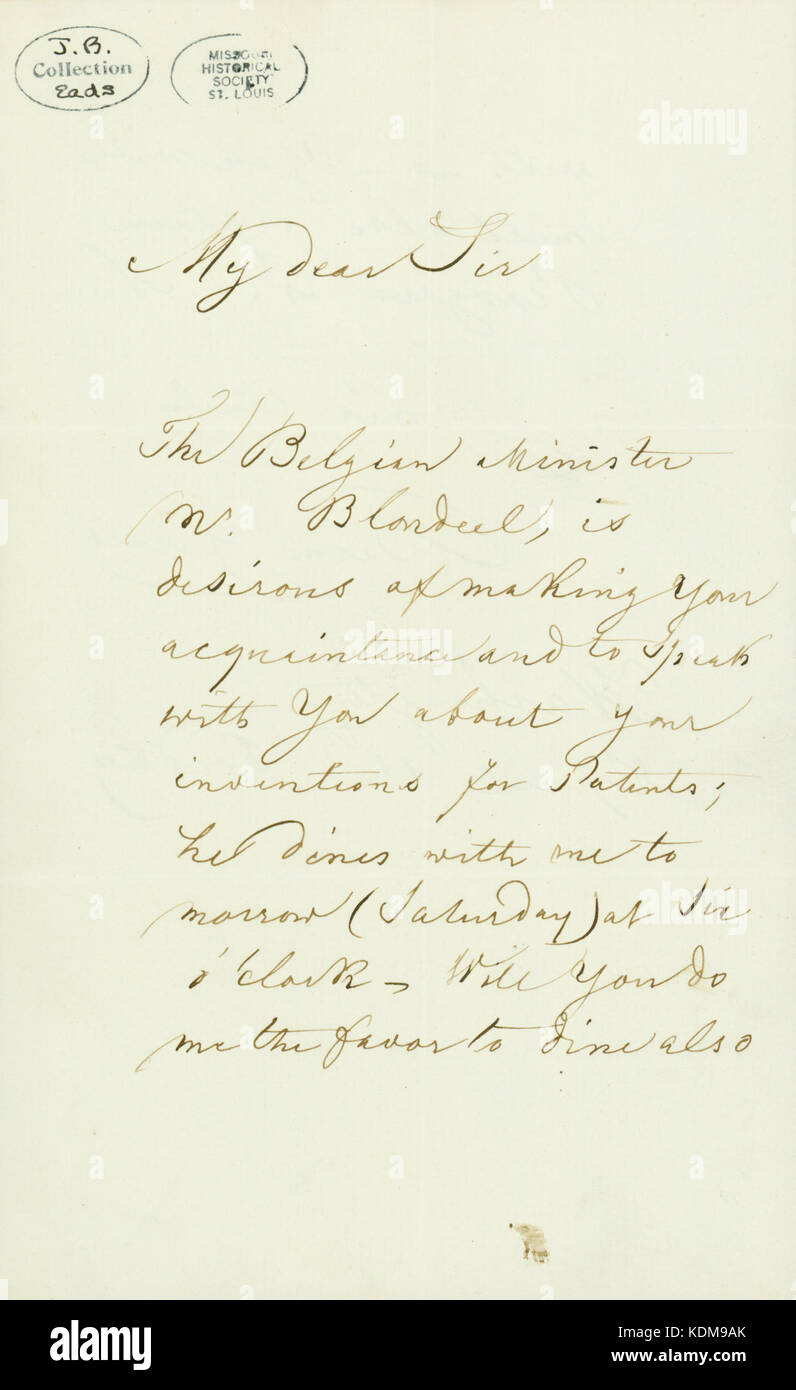 J.B.
Collection
Eads
MISSOURI
HISTORICAL
SOCIETY
ST. LOUIS
My dear Sir
The Belgian Minister
Blondeel, is
desirous of making your
acquaintance and to speak
with You about your
inventions for Patents;
he dines with me to
morrow (Saturday) at Six
o'clock - Will You do
me the favor to dine also
alamy
alamy
alamy
a alamy stock photo
KDM9AK
www.alamy.com